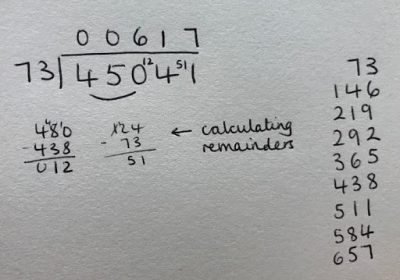 00617
73 450¹²4⁵¹1
4⁴5̸¹0 - 438 = 012
1̸¹24 - 73 = 51
← calculating
remainders
73
146
219
292
365
438
511
584
657